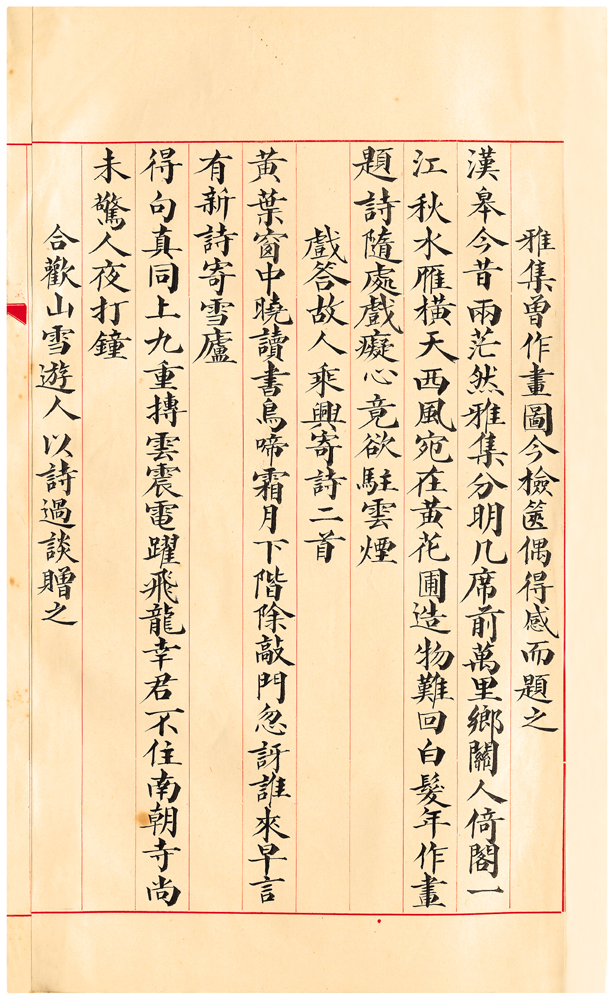 雅集曾作畫圖今檢篋偶得感而題之
漢皋今昔雨茫然雅集分明几席前萬里鄉關人倚閣一
江秋水雁橫天西風宛在黃花圃造物難回白髮年作畫
題詩隨處戲癡心竟欲駐雲煙
戲答故人乘興寄詩二首
黃葉窗中曉讀書鳥啼霜月下階除敲門忽訝誰來早言
有新詩寄雪廬
得句真同上九重摶雲震電躍飛龍幸君不住南朝寺尚
未驚人夜打鐘
合歡山雪遊人以詩過談贈之